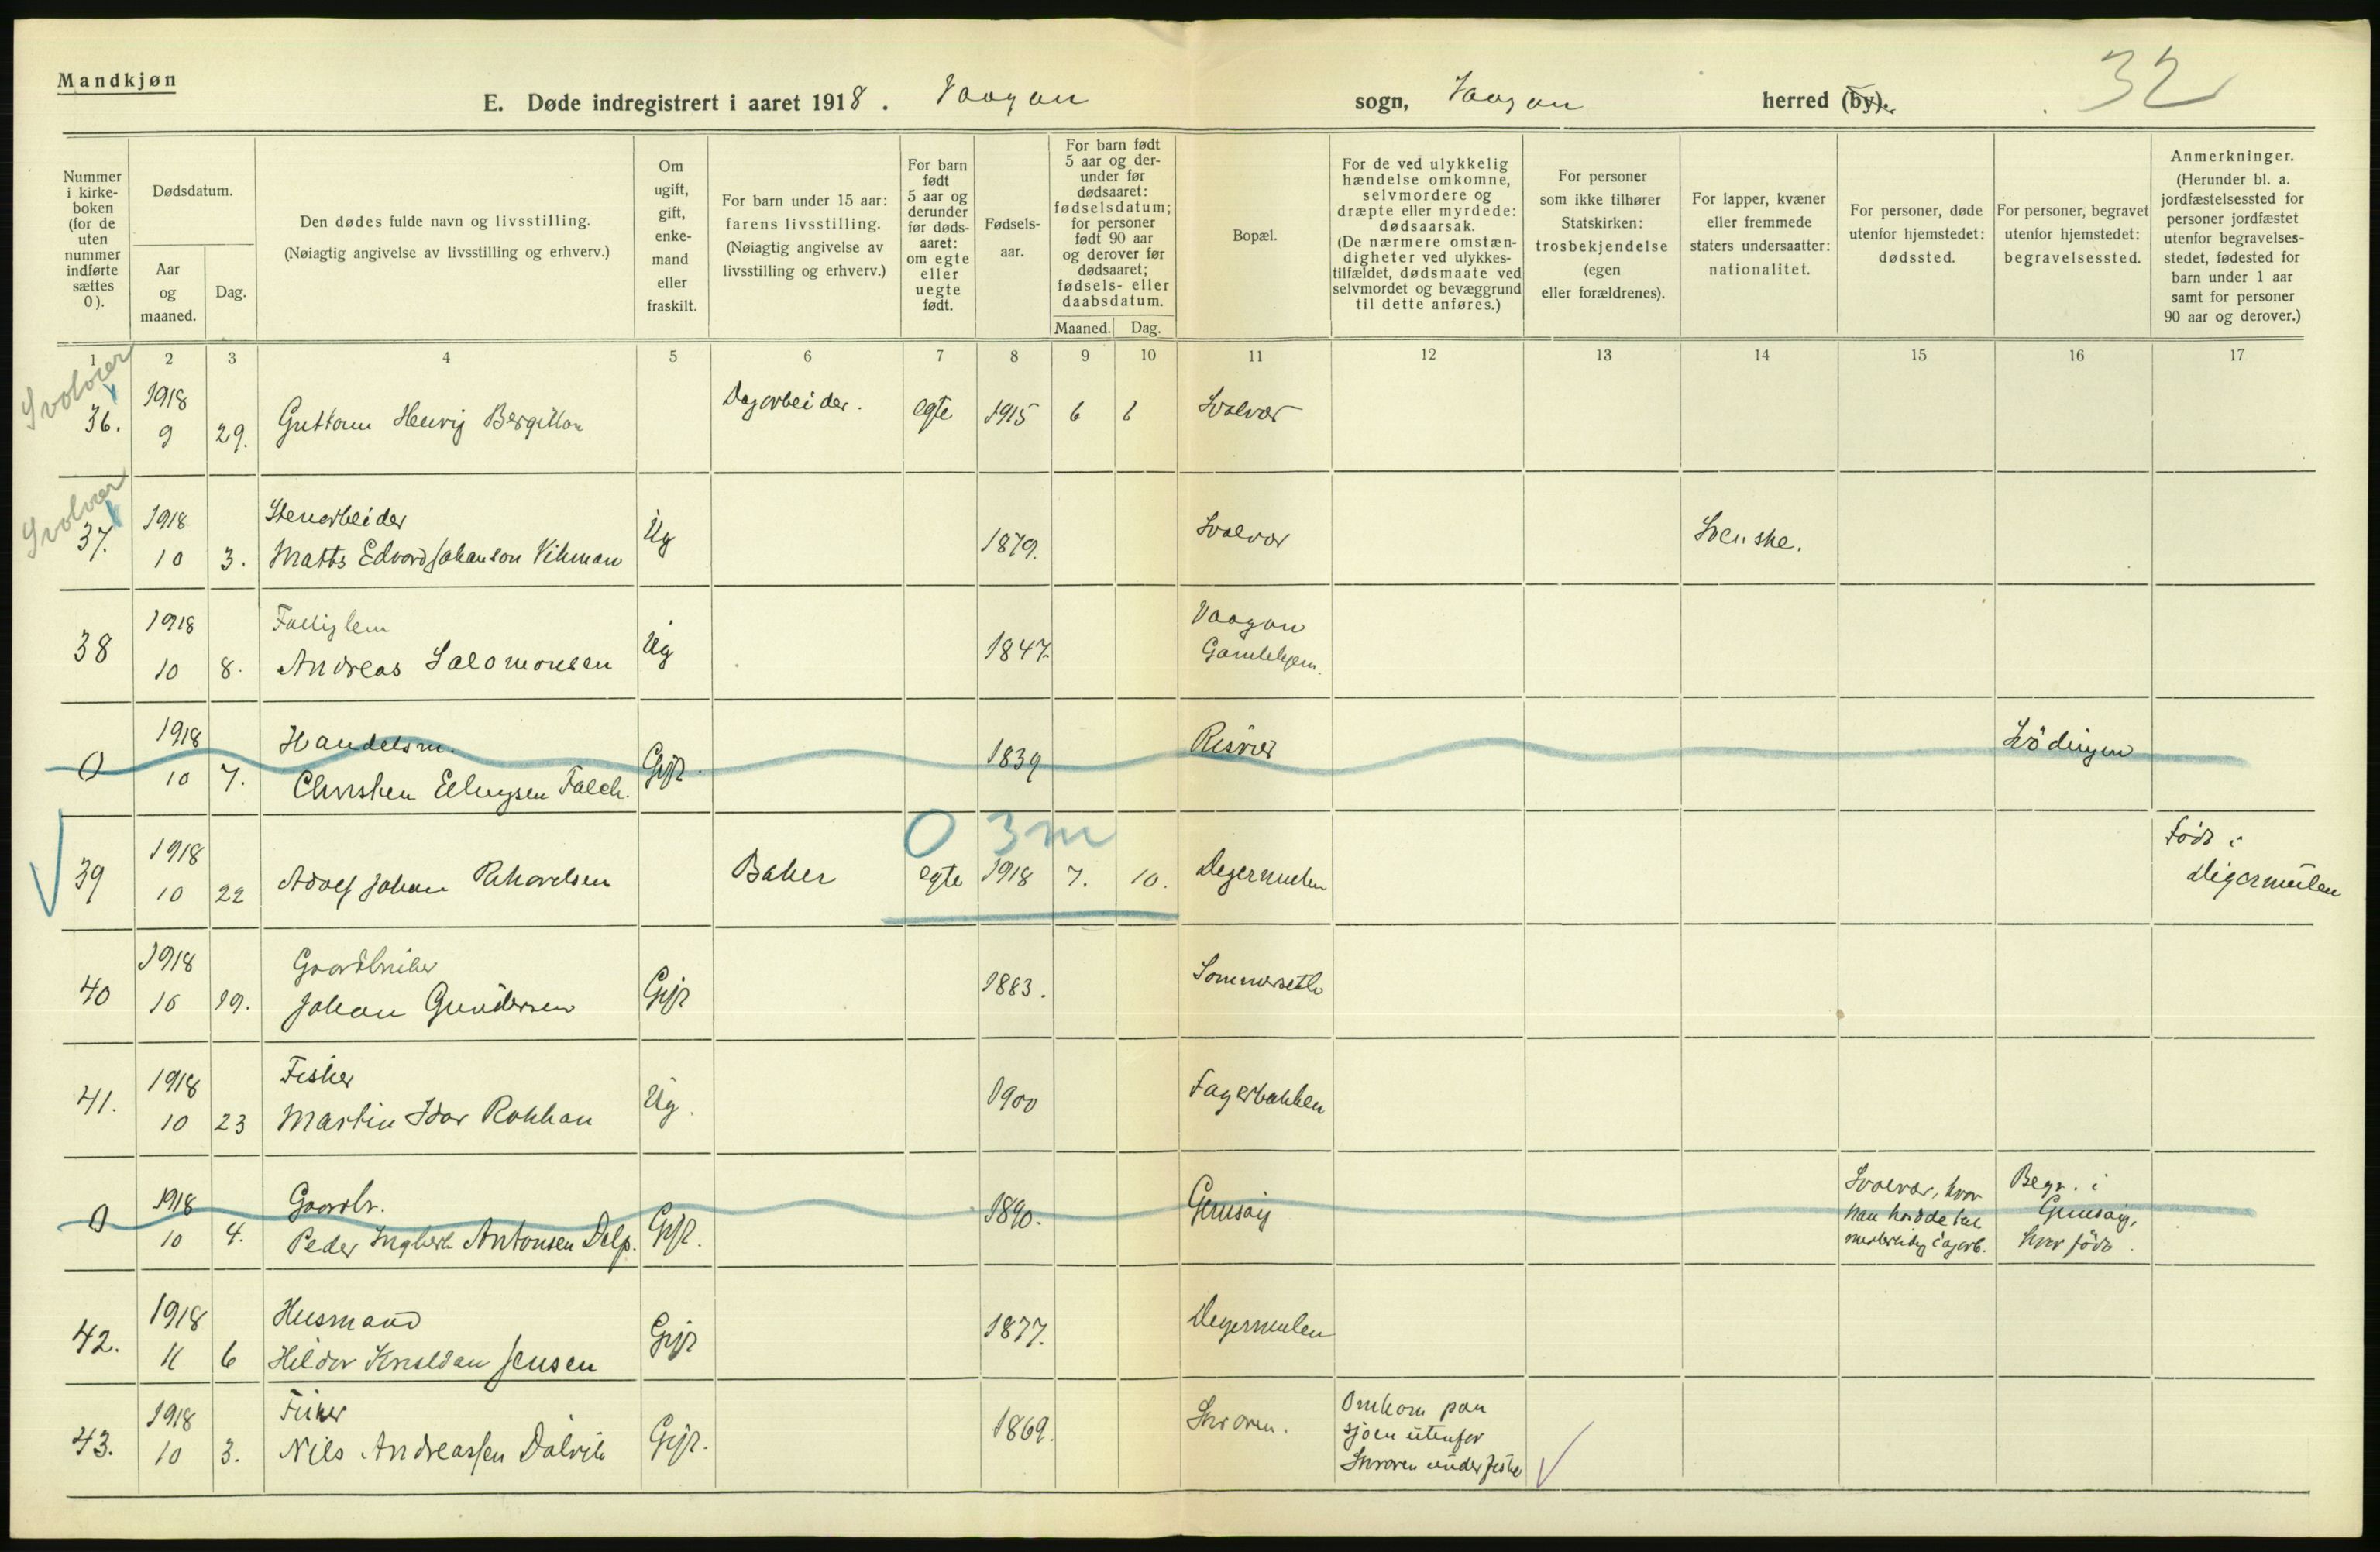 Mandkjøn
E. Døde indregistrert i aaret 1918. Vaagan sogn, Vaagan herred (by). 32
Nummer i kirke-boken (for de uten nummer indførte sættes 0).
Dødsdatum.
Aar og maaned.
Dag.
Den dødes fulde navn og livsstilling.
(Nøiagtig angivelse av livsstilling og erhverv.)
Om ugift, gift, enke-mand eller fraskilt.
For barn under 15 aar: farens livsstilling.
(Nøiagtig angivelse av livsstilling og erhverv.)
For barn født 5 aar og derunder før døds-aaret: om egte eller uegte født.
Fødsels-aar.
For barn født 5 aar og der-under før dødsaaret: fødselsdatum; for personer født 90 aar og derover før dødsaaret; fødsels- eller daabsdatum.
Maaned.
Dag.
Bopæl.
For de ved ulykkelig hændelse omkomne, selvmordere og dræpte eller myrdede: dødsaarsak.
(De nærmere omstæn-digheter ved ulykkes-tilfældet, dødsmaate ved selvmordet og bevæggrund til dette anføres.)
For personer som ikke tilhører Statskirken: trosbekjendelse (egen eller forældrenes).
For lapper, kvæner eller fremmede staters undersaatter: nationalitet.
For personer, døde utenfor hjemstedet: dødssted.
For personer, begravet utenfor hjemstedet: begravelsessted.
Anmerkninger.
(Herunder bl. a. jordfæstelsessted for personer jordfæstet utenfor begravelses-stedet, fødested for barn under 1 aar samt for personer 90 aar og derover.)
1 2 3 4 5 6 7 8 9 10 11 12 13 14 15 16 17
Svolvær
36. 1918 9 29. Guttorm Henrij Dagarbeider. egte 1915 6 Svolvær
Svolvær
37. 1918 Stenarbeider
10 3. Matts Edvard Johanson Vikman Ug 1879. Svolvær Svenske.
38 1918 Fattiglem
10 8. Andreas Salomonsen Ug 1847. Vaagan Gamlehjem.
0 1918 Handelsm.
10 7. Christen Ellingsen Falch. Gift. 1839 Risvær Lødingen
0 3m
39 1918 10 22 Adolf Johan Rikardsen Baker egte 1918 7. 10. Digermulen Født i Digermulen
40 1918 Gaardbruker
10 19. Johan Gundersen Gift 1883. Sommersette
41. 1918 Fisker
10 23 Martin Idar Rokkan Ug. 1900 Fagerbakken
0 1918 Gaardbr.
10 4. Peder Ingbert Antonsen Dalp. Gift. 1890. Gimsøy Svolvær, hvor han hadde Begr. i Gimsøy, hvor født.
42. 1918 Husmand
11 6 Hildor Kristian Jensen Gift 1877. Digermulen
43. 1918 Fisker
10 3. Nils Andreassen Dalvik Gift. 1869. Skroven. Omkom paa sjøen utenfor Skroven under fiske